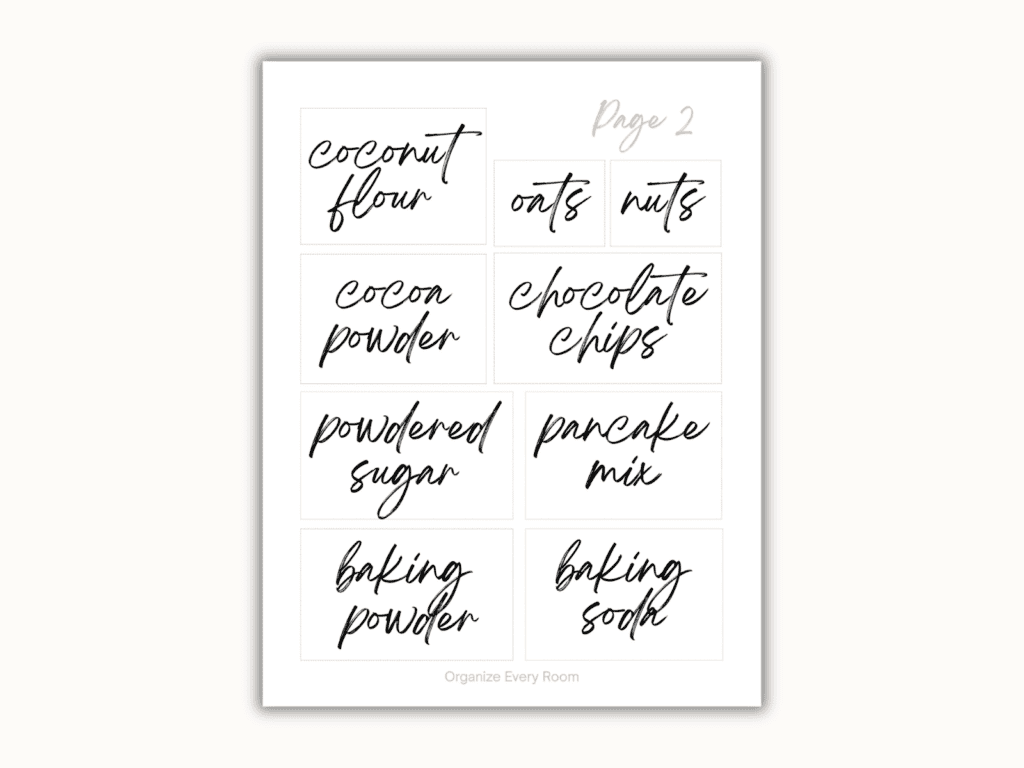 Page 2
coconut
flour
oats
nuts
cocoa
powder
chocolate
chips
powdered
sugar
pancake
mix
baking
powder
baking
soda
Organize Every Room